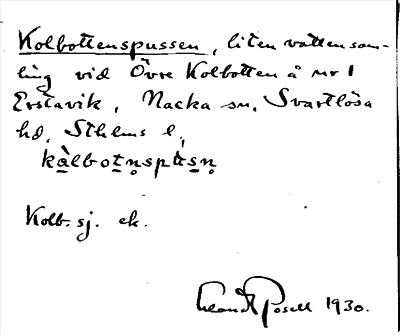 Kolbottenspussen, liten vattensam-
ling vid Övre Kolbotten å nr 1
Erstavik, Nacka sn, Svartlösa
hd, Sthlms l.
Kolb. sj. ek.
1930.